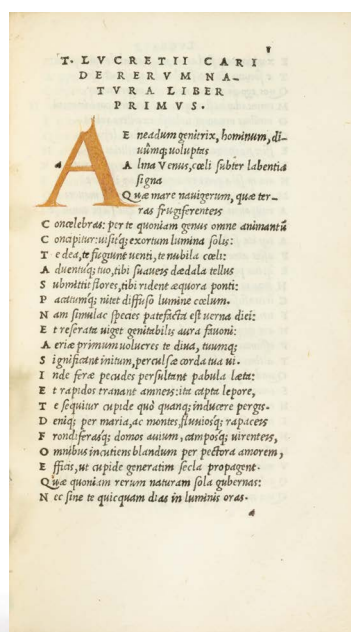 T. LVCRETII CARI
DE RERVM NA-
TVRA LIBER
PRIMVS.
A E neadum genitrix, hominum, di-
uũmq; uoluptas
A lma Venus, cœli subter labentia
signa
Q uæ mare nauigerum, quæ ter-
ras frugiferenteis
C oncelebras: per te quoniam genus omne animantũ
C oncipitur: uisitq; exortum lumina solis:
T e dea, te fugiunt uenti, te nubila cœli:
A duentuq; tuo, tibi suaueis dædala tellus
S ubmittit flores, tibi rident æquora ponti:
P acatumq; nitet diffuso lumine cœlum.
N am simulac species patefacta est uerna diei:
E t reserata uiget genitabilis aura fauoni:
A eriæ primum uolucres te diua, tuumq;
S ignificant initum, perculsæ corda tua ui.
I nde feræ pecudes persultant pabula læta:
E t rapidos tranant amneis: ita capta lepore,
T e sequitur cupide quò quanq; inducere pergis.
D eniq; per maria, ac montes, fluuiosq; rapaceis
F rondiferasq; domos auium, camposq; uirenteis,
O mnibus incutiens blandum per pectora amorem,
E fficis, ut cupide generatim secla propagent.
Q uæ quoniam rerum naturam sola gubernas:
N ec sine te quicquam dias in luminis oras.
a